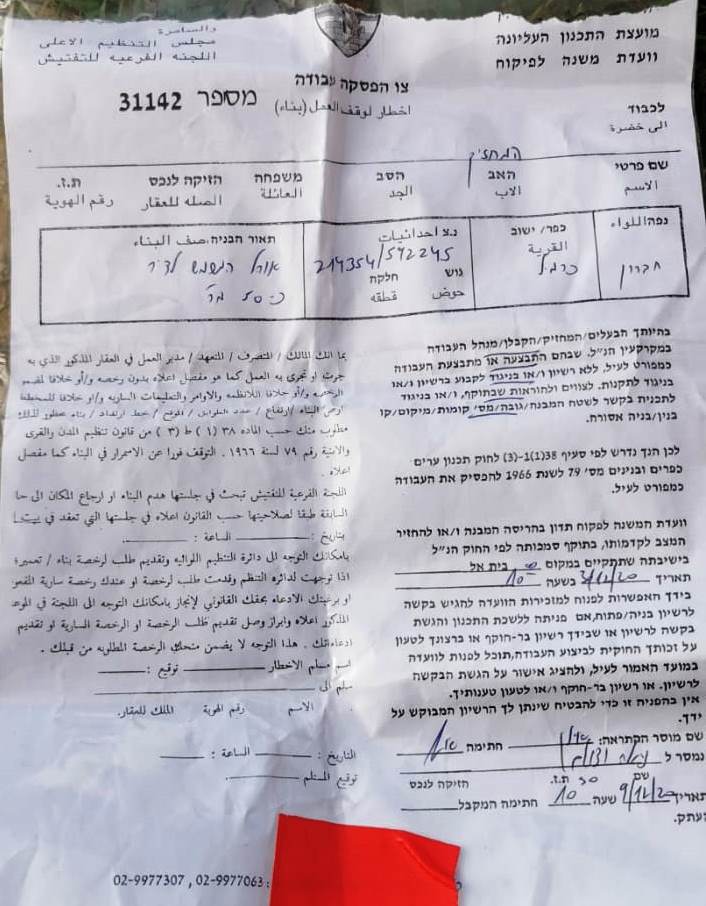 והשומרון
والسامرة
מועצת התכנון העליונה
مجلس التنظيم الاعلى
וועדת משנה לפיקוח
اللجنه الفرعيه للتفتيش
צו הפסקה עבודה
מספר 31142
اخطار لوقف العمل (بناء)
לכבוד
الى حضرة
המחזיק
שם פרטי האב הסב משפחה הזיקה לנכס ת.ז.
الاسم الاب الجد العائلة الصله للعقار رقم الهوية
נפה/הלואה כפר/ ישוב נ.צ احداثيات תאור הבניה,صف البناء
القرية
חברון כרמל 214354/592245
גוש חלקה
حوض قطقه
כ-50 מ"ר
בהיותך הבעלים/המחזיק/הקבלן/מנהל העבודה
במקרקעין הנ"ל. שבהם התבצעה או מתבצעת העבודה
כמפורט לעיל, ללא רשיון ו/או בניגוד לקבוע ברשיון ו/או
בניגוד לתקנות. לצווים ולהוראות שבתוקף, ו/או בניגוד
לתכנית בקשר לשטח המבנה/גובה/מס' קומות/מיקום/קו
בנין/בניה אסורה.
לכן הנך נדרש לפי סעיף 38(1)-(3) לחוק תכנון ערים
כפרים ובנינים מס' 79 לשנת 1966 להפסיק את העבודה
כמפורט לעיל.
וועדת המשנה לפקוח תדון בהריסת המבנה ו/או להחזיר
המצב לקדמותו, בתוקף סמכותה לפי החוק הנ"ל
בישיבתה שתתקיים במקום בית אל
תאריך 3/12/20 בשעה 10
בידך האפשרות לפנות למזכירות הוועדה להגיש בקשה
לרשיון בניה/פתוח,אם פניתה ללשכת התכנון והגשת
בקשה לרשיון או שבידך רשיון בר-תוקף או ברצונך לטעון
על זכותך החוקית לביצוע העבודה,תוכל לפנות לוועדה
במועד האמור לעיל, ולהציג אישור על הגשת הבקשה
לרשיון. או רשיון בר-תוקף ו/או לטעון טענותיך.
אין בהפניה זו כדי להבטיח שינתן לך הרשיון המבוקש על
ידך.
שם מוסר הקתראה: חתימה
נמסר ל
שם ת.ז. הזיקה לנכס
תאריך 9/11/20 שעה 10 חתימה המקבל
העתק.
بما انك المالك / المتصرف / المتعهد / مدير العمل في العقار المذكور الذي به
جرت او تجرى به العمل كما هو مفصل اعلاه بدون رخصه و/أو خلافا
الرخصه و/أو خلافا للانظمه والاوامر والتعليمات الساريه و/او خلافا للمخطط
ارض البناء / ارتفاع / عدد الطوابق / الموقع / خط ارتداد / بناء محظور لذلك
مطلوب منك حسب الماده ٣٨ (١) ط (٣) من قانون تنظيم المدن والقرى
والابنية رقم ٧٩ لسنة ١٩٦٦ . التوقف فورا عن الاسمرار في البناء كما مفصل
اعلاه .
اللجنة الفرعية للتفتيش تبحث في جلستها هدم البناء او ارجاع المكان الى
السابقة طبقا لصلاحيتها حسب القانون اعلاه في جلستها التي تعقد في
بتاريخ : الساعة :
بامكانك التوجه الى دائرة التنظيم اللوائيه وتقديم طلب لرخصة بناء / تعمير؛
اذا توجهت لدائره التنظم وقدمت طلب لرخصة او عندك رخصة سارية
او برغبتك الادعاء بحقك القانوني لإنجاز بامكانك التوجه الى اللجنة في
المذكور اعلاه وابراز وصل تقديم طلب الرخصة او الرخصة السارية او تقديم
ادعاءاتك . هذا التوجه لا يضمن منحك الرخصة المطلوبه من قبلك .
اسم مسلم الاخطار توقيع :
سلم الى
الاسم رقم الهوية الملك للعقار.
التاريخ : الساعة :
توقيع المستلم
02-9977307 , 02-9977063 :